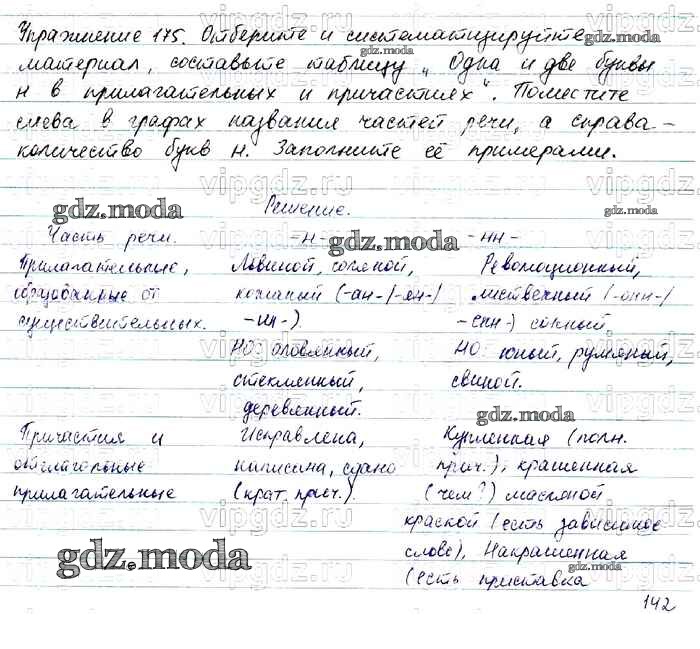 Упражнение 175. Отберите и систематизируйте
материал, составьте таблицу „Одна и две буквы
н в прилагательных и причастиях“. Поместите
слева в графах названия частей речи, а справа –
количество букв н. Заполните её примерами.
Решение.
Часть речи. -н- -нн-
Прилагательные, Львиной, соляной, Революционный,
образованные от кожаный (-ан-/-ян-/ лиственный (-онн-/
существительных. -ин-). -енн-)
НО: оловянный, НО: юный, румяный,
стеклянный, свиной.
деревянный.
Причастия и Исправлена, Купленная (полн.
отглагольные написана, сдано прич.), крашенная
прилагательные (крат. прич.). (чем?) масляной
краской (есть зависимое
слово), Накрашенная
(есть приставка
142
gdz.moda
vipgdz.ru